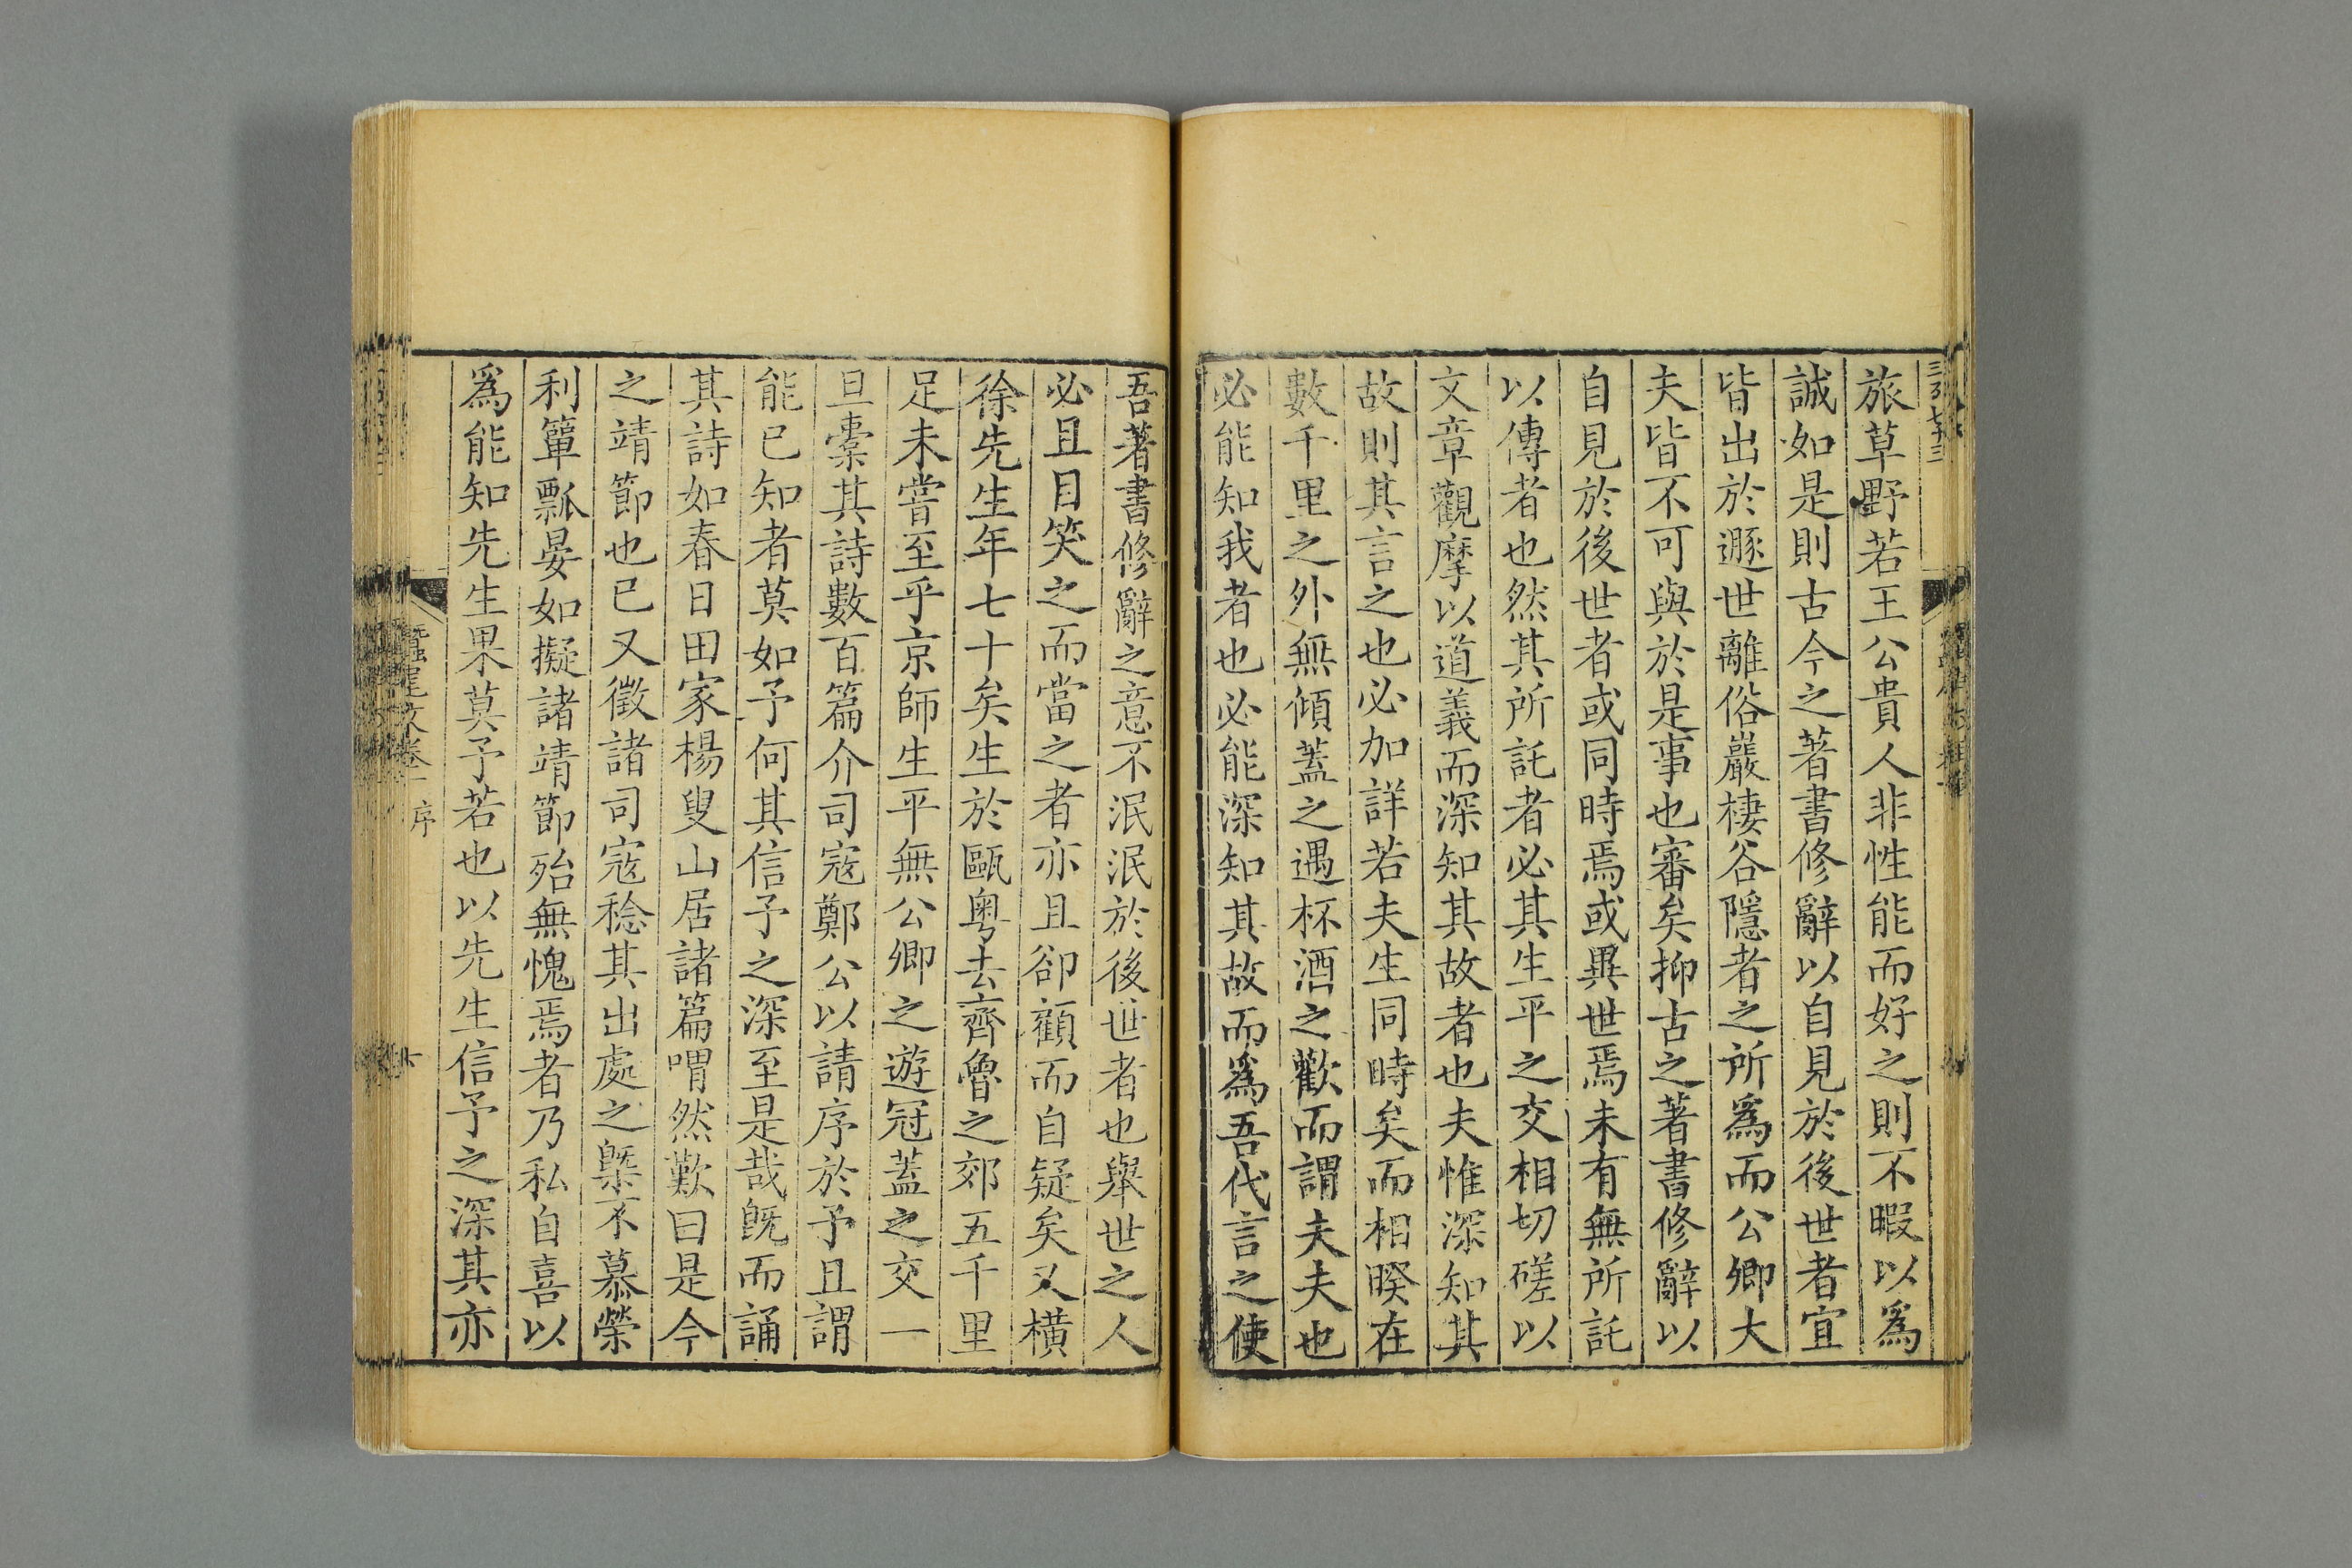 旅草野若王公貴人非性能而好之則不暇以爲
誠如是則古今之著書修辭以自見於後世者宜
皆出於遯世離俗巖棲谷隱者之所爲而公卿大
夫皆不可與於是事也審矣抑古之著書修辭以
自見於後世者或同時焉或異世焉未有無所託
以傳者也然其所託者必其生平之交相切磋以
文章觀摩以道義而深知其故者也夫惟深知其
故則其言之也必加詳若夫生同時矣而相暌在
數千里之外無傾蓋之遇杯酒之歡而謂夫夫也
必能知我者也必能深知其故而爲吾代言之使
吾著書修辭之意不泯泯於後世者也舉世之人
必且目笑之而當之者亦且卻顧而自疑矣又橫
徐先生年七十矣生於甌粵去齊魯之郊五千里
足未嘗至乎京師生平無公卿之遊冠蓋之交一
旦橐其詩數百篇介司寇鄭公以請序於予且謂
能已知者莫如予何其信予之深至是哉旣而誦
其詩如春日田家楊叟山居諸篇喟然歎曰是今
之靖節也已又徵諸司寇稔其出處之槩不慕榮
利簞瓢晏如擬諸靖節殆無愧焉者乃私自喜以
爲能知先生果莫予若也以先生信予之深其亦
蠶尾文卷一 序